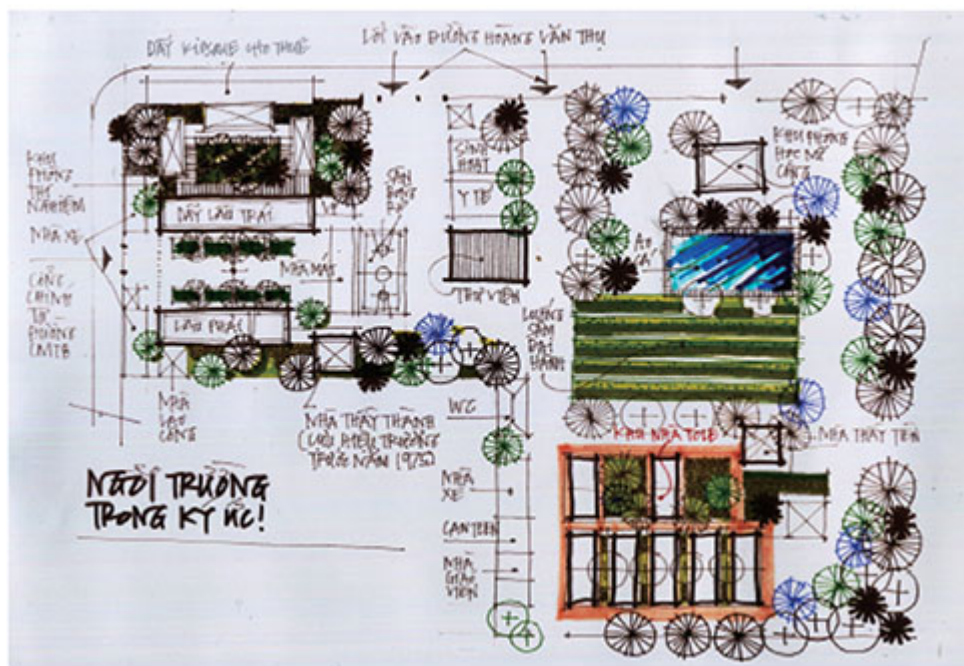 DÃY KIOSQUE CHO THUÊ
LỐI VÀO ĐƯỜNG HOÀNG VĂN THỤ
KHU
PHÒNG
THÍ
NGHIỆM
NHÀ XE
CỔNG
CHÍNH
TỪ
ĐƯỜNG
CMT8
DÃY LẦU TRÁI
LẦU PHẢI
NHÀ MÁT
SÂN
BÓNG
RỔ
SINH
HOẠT
Y TẾ
THƯ VIỆN
KHU PHÒNG
HỌC NỮ
CÔNG
AO
CÁ
LUỐNG
SÂM
ĐẠI
HÀNH
NHÀ
LAO
CÔNG
NHÀ THẦY THÀNH
(CỰU HIỆU TRƯỞNG
TRƯỚC NĂM 1975)
WC
KHU NHÀ TOLE
NHÀ THẦY TÊN
NHÀ
XE
CANTEEN
NHÀ
GIÁO
VIÊN
NGÔI TRƯỜNG
TRONG KÝ ỨC!